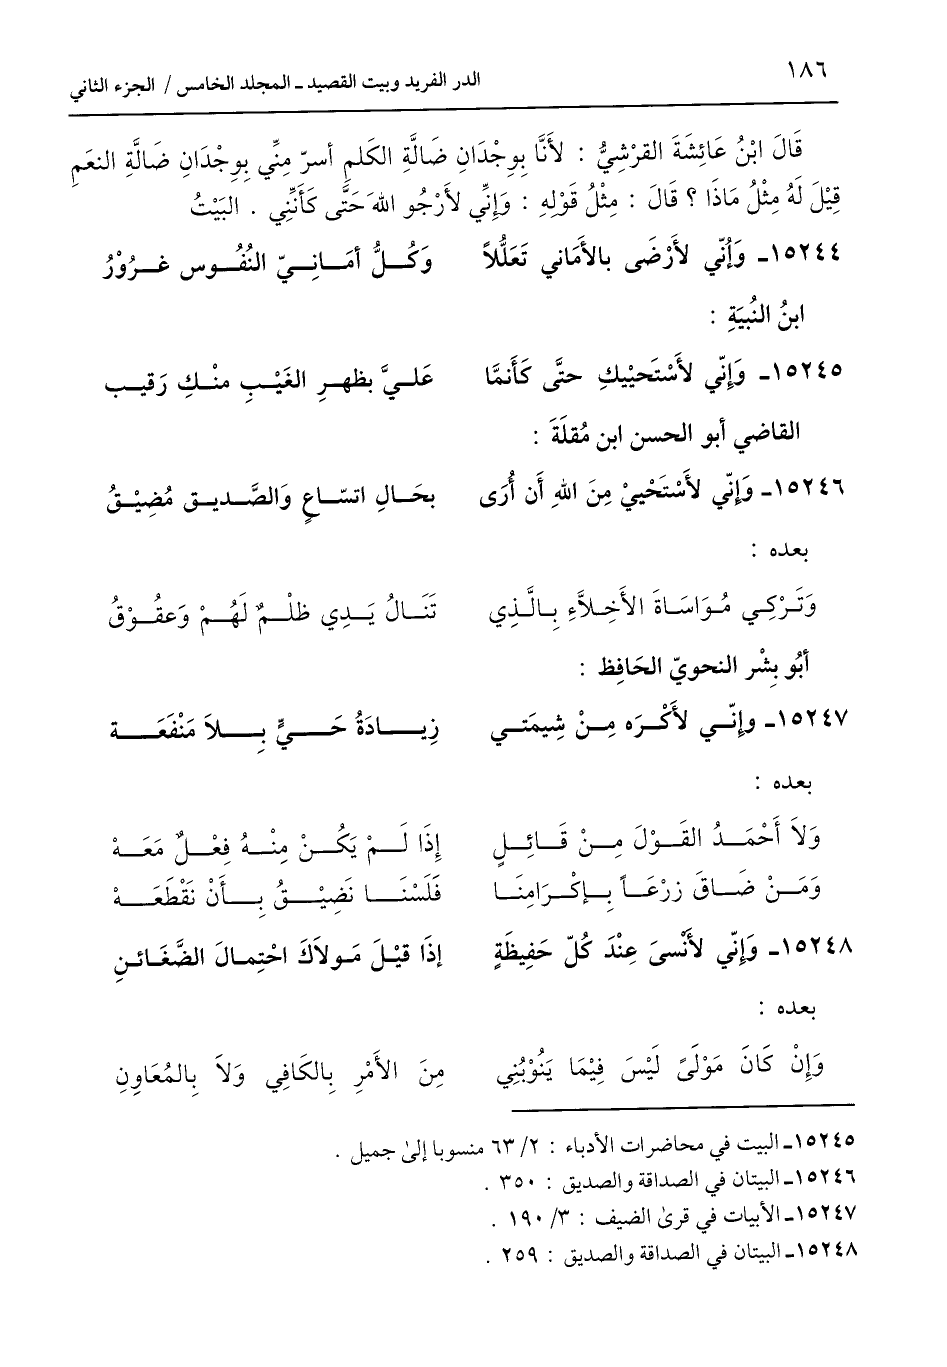 ١٨٦
الدر الفريد وبيت القصيد ـ المجلد الخامس / الجزء الثاني
قَالَ ابْنُ عَائِشَةَ القرْشِيُّ : لأَنَّا بِوِجْدَانِ ضَالَّةِ الكَلمِ أسرّ مِنِّي بِوِجْدَانِ ضَالَّةِ النعَمِ
قِيْلَ لَهُ مِثْلُ مَاذَا ؟ قَالَ : مِثْلُ قَوْلِهِ : وَإِنِّي لأَرْجُو اللهَ حَتَّى كَأَنِّنِي . البَيْتُ
١٥٢٤٤ـ وَإُنّي لأَرْضَى بالأمَاني تَعَلُّلاً وَكُــلُّ أمَــانِــيّ النُفُــوس غــرُوْرُ
ابنُ النُبيَةِ :
١٥٢٤٥ـ وَإِنّي لأَسْتَحيْيكِ حتَّى كَأَنمَّا عَلــيَّ بظهــرِ الغَيْــبِ منْــكِ رَقيــب
القاضي أبو الحسن ابن مُقلَةَ :
١٥٢٤٦ـ وَإِنّي لأَسْتَحْييْ مِنَ اللهِ أَن أُرَى بحَــالِ اتسّــاعٍ وَالصَّــديــق مُضِيْــقُ
بعده :
وَتَــرْكِــي مُــوَاسَــاةَ الأَخِــلاَّءِ بِــالَّــذِي تَنَــالُ يَــدِي ظلْــمٌ لَهُــمْ وَعقُــوْقُ
أبُو بِشْر النحويّ الحَافِظ :
١٥٢٤٧ـ وإِنّــي لأَكْــرَه مِــنْ شِيمَتــي زِيــــادَةُ حَــــيٍّ بِــــلاَ مَنْفَعَــــة
بعده :
وَلاَ أَحْمَــدُ القَــوْلَ مِــنْ قَــائِــلٍ إِذَا لَــمْ يَكُــنْ مِنْــهُ فِعْــلٌ مَعَــهْ
وَمَــنْ ضَــاقَ زرْعَــاً بــإكْــرَامِنَــا فَلَسْنَــا نَضِيْــقُ بِــأَنْ نَقْطَعَــهْ
١٥٢٤٨ـ وَإِنّي لأَنْسىَ عِنْدَ كُلّ حَفِيظَةٍ إذَا قيْـلَ مَـولاَكَ احْتِمالَ الضَّغَـائـنِ
بعده :
وَإِنْ كَانَ مَوْلَىً لَيْسَ فِيْمَا يَنُوْبُنِي مِنَ الأَمْرِ بِالكَافِي وَلاَ بِالمُعَاوِنِ
١٥٢٤٥ـ البيت في محاضرات الأدباء : ٢/ ٦٣ منسوبا إلىٰ جميل .
١٥٢٤٦ـ البيتان في الصداقة والصديق : ٣٥٠ .
١٥٢٤٧ـ الأبيات في قرىٰ الضيف : ٣/ ١٩٠ .
١٥٢٤٨ـ البيتان في الصداقة والصديق : ٢٥٩ .